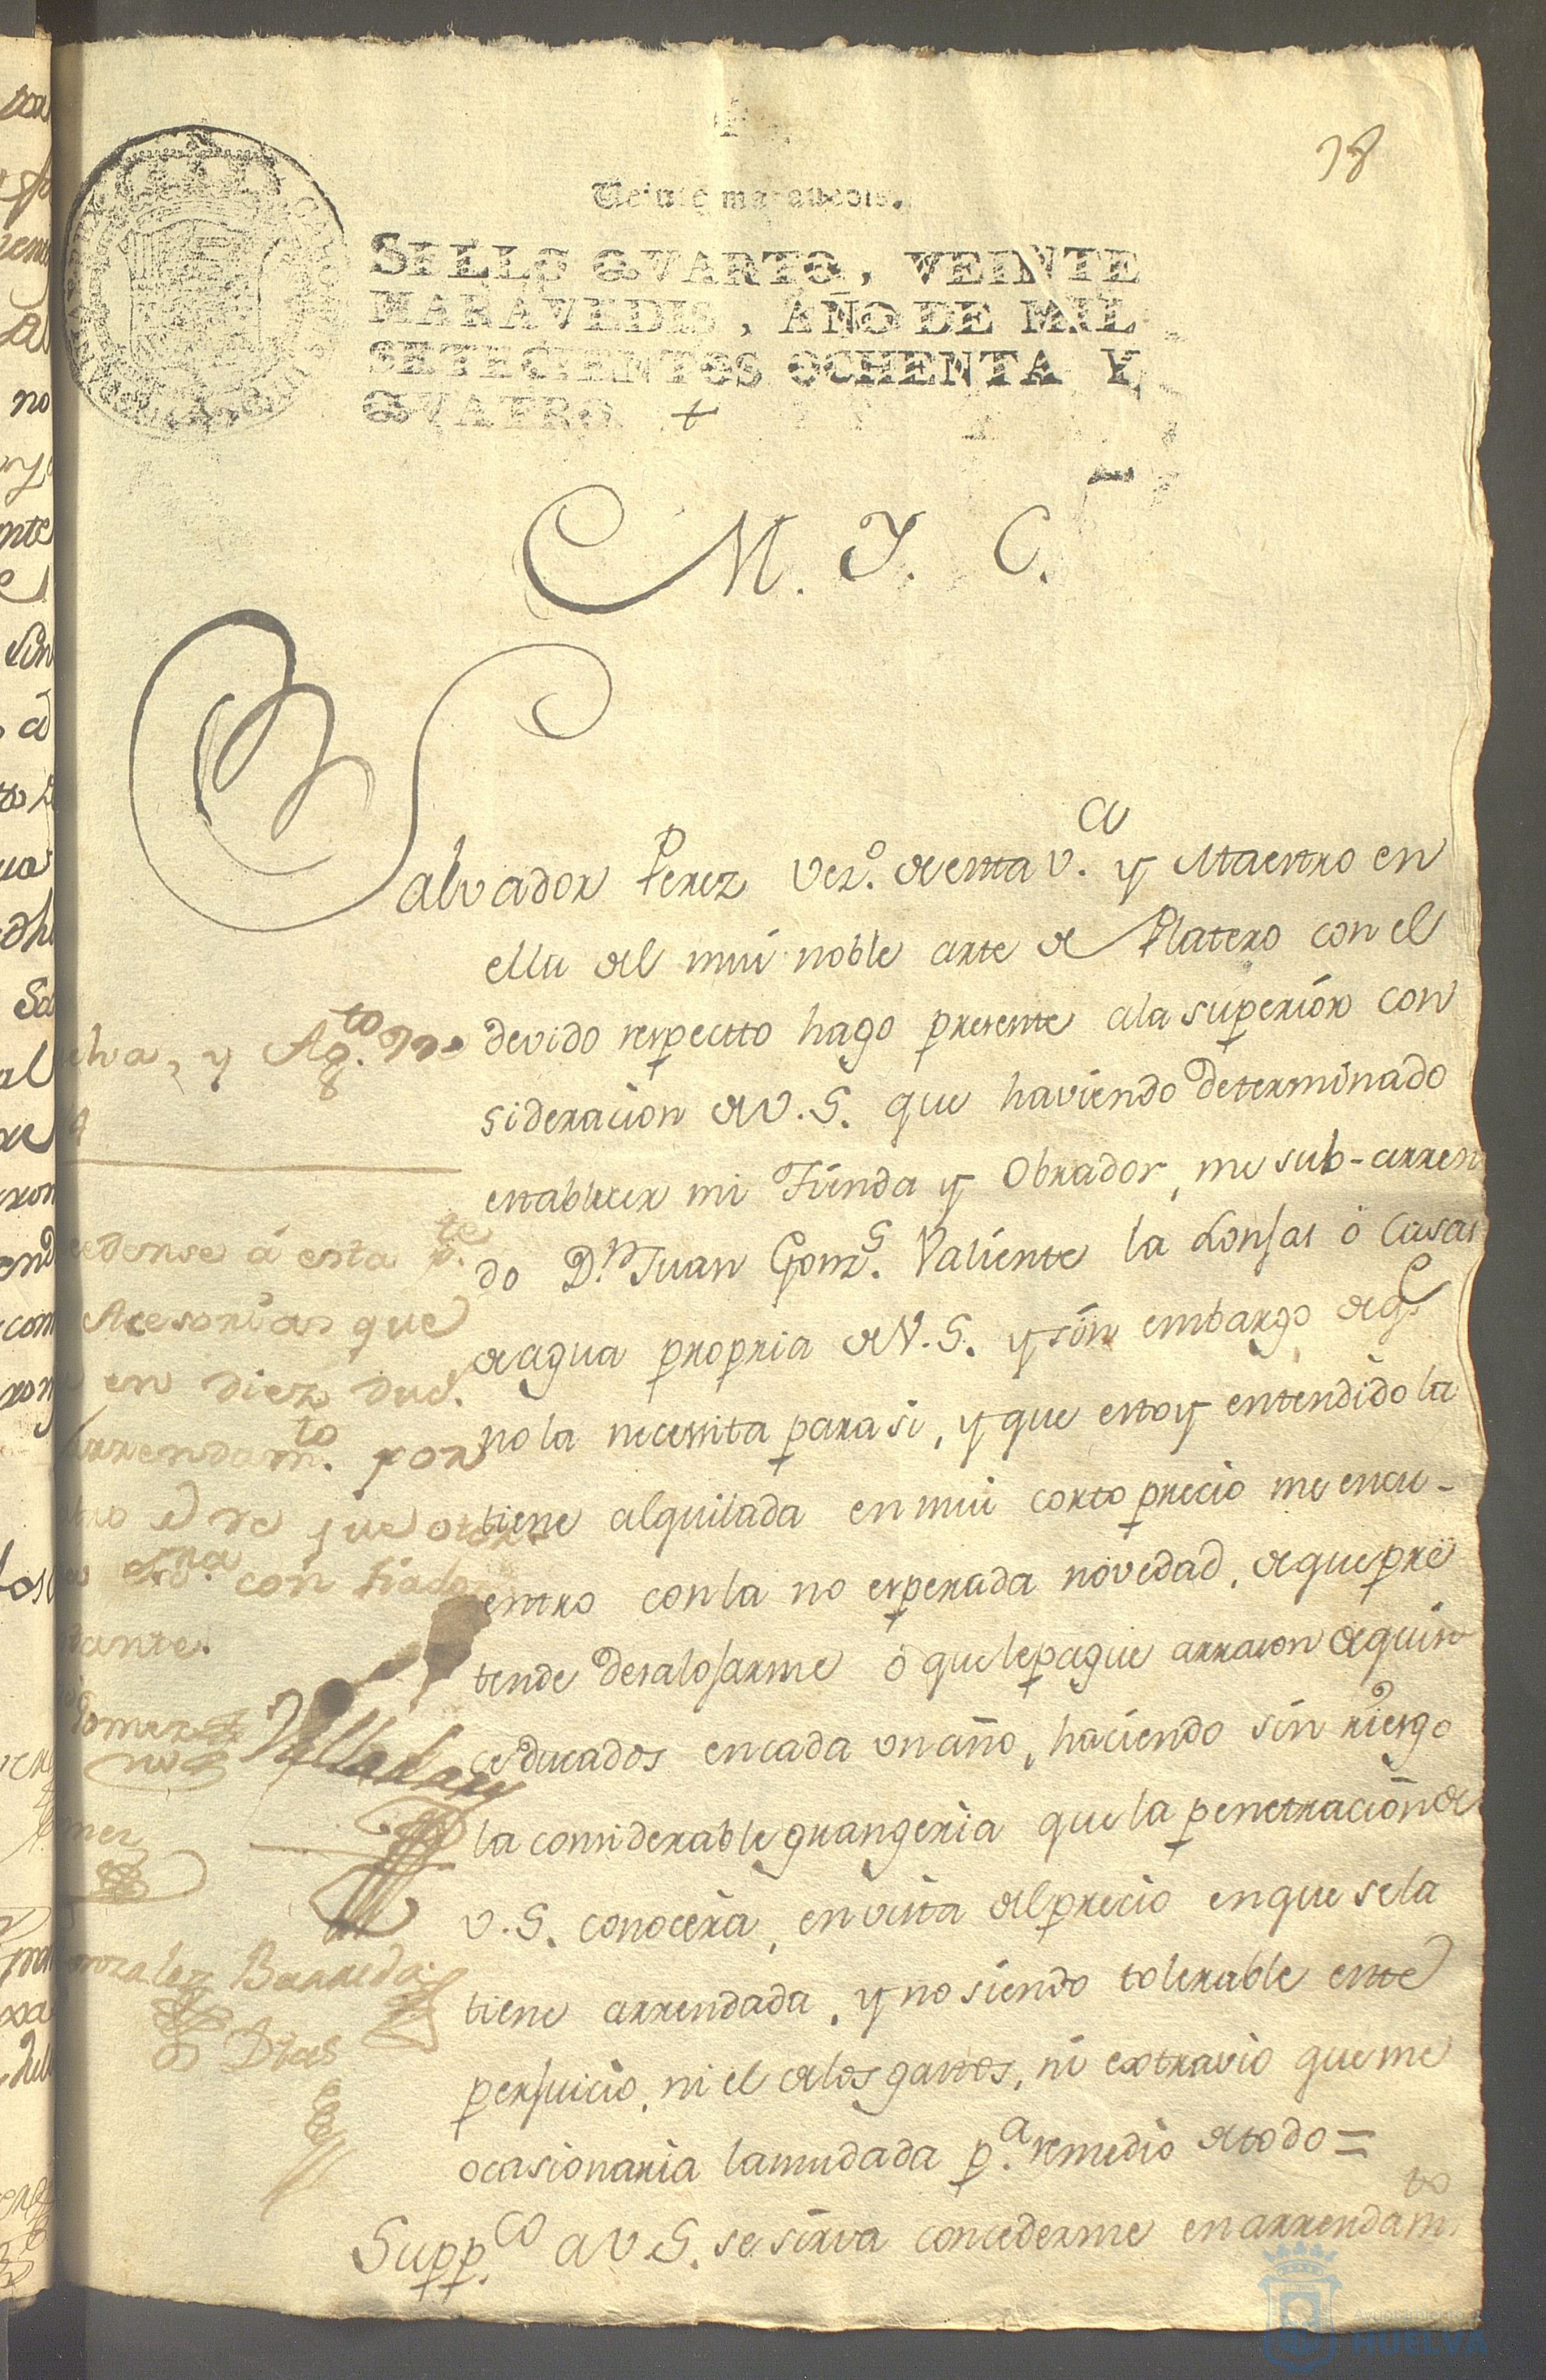 78
Veinte maravedis.
SELLO QVARTO, VEINTE
MARAVEDIS, AÑO DE MIL
SETECIENTOS OCHENTA Y
QVATRO.
M. Y. C.
Salvador Perez vez.º de esta v.ª y Maestro en
ella del mui noble arte de Platero con el
devido respectto hago presente a la superiór con
sideracion de V. S. que haviendo determinado
establecer mi Tienda y Obrador, me sub-arren
do D.n Juan Gonz.s Valiente la Lonjas ó Casas
de agua propria de V. S. y sin embargo de q.e
no la necessita para si, y que estoy entendido la
tiene alquilada en mui corto precio me encu-
entro con la no esperada novedad, de que pre
tende desalojarme ó que le pague a rrason de quin
ce ducados en cada un año, haciendo sin riesgo
la considerable grangeria que la penetracion de
V. S. conocerá, en vista del precio en que se la
tiene arrendada, y no siendo tolerable este
perjuicio, ni el de los gastos, ni extravio que me
ocasionaria la mudada p.ª remedio de todo =
Supp.co a V. S. se sirva concederme en arrendam.to
elva, y Ag.to
8
edense á esta p.te
Acesorias que
en diez duc.
Arrendam.to por
que
con fiador
tante.
Gomez
Villa
mez
onzalez Barreda
Dias
Ayuntamiento de
HUELVA